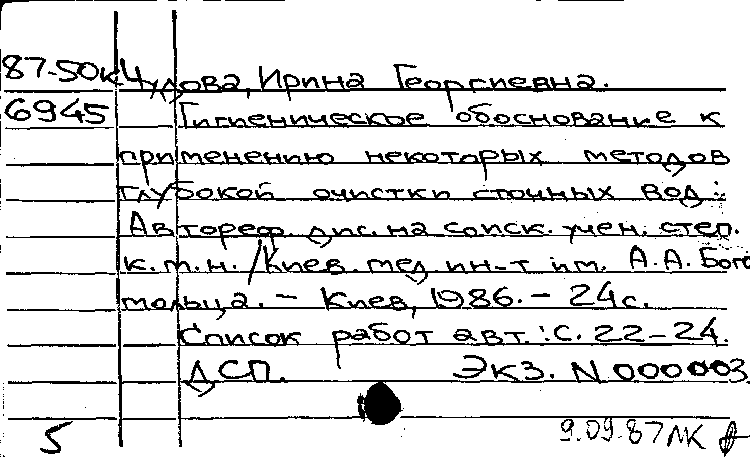 87-50к Чудова, Ирина Георгиевна.
6945 Гигиеническое обоснование к
применению некоторых методов
глубокой очистки сточных вод:
Автореф. дис. на соиск. учен. степ.
к.м.н. / Киев. мед. ин-т им. А.А. Бого
мольца. - Киев, 1986. - 24 с.
Список работ авт.: С. 22-24.
ДСП. Экз. N 000003.
5 9.09.87 ЛК